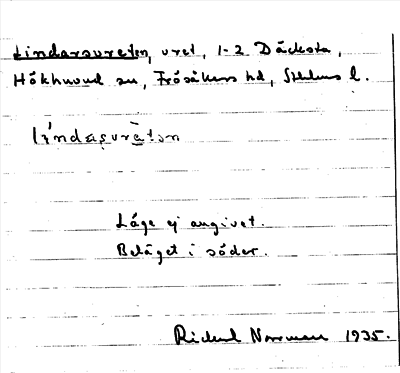 Lindarsvreten, vret, 1-2 Däcksta,
Hökhuvud sn, Frösåkers hd, Sthlms l.
lindasvretən
Läge ej angivet.
Beläget i söder.
Rickard Norrman 1935.